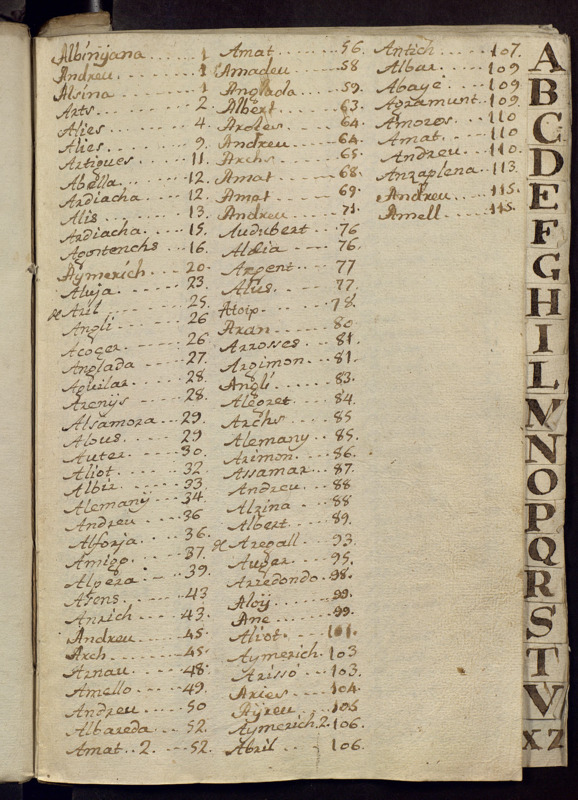 Albinyana ..... 1
Andreu ..... 1
Alsina ..... 1
Arts ..... 2
Alies ..... 4
Alies ..... 9
Artigues ..... 11
Abella ..... 12
Ardiacha ..... 12
Alis ..... 13
Ardiacha ..... 15
Agontenchs .. 16
Aymerich ... 20
Aluja ..... 23
de Aril ..... 25
Angli ..... 26
Acoger ..... 26
Anglada ..... 27
Aguilar ..... 28
Arenijs ..... 28
Alsamora ... 29
Alous ..... 29
Auter ..... 30
Aliot ..... 32
Albir ..... 33
Alemanij .... 34
Andreu .... 36
Alforja .... 36
Amigo ..... 37
..... 39
Afons ..... 43
Anrich .... 43
Andreu .... 45
Arch ..... 45
Arnau ..... 48
Amello .... 49
Andreu .... 50
Albareda ... 52
Amat .. 2. ... 52
Amat ..... 56
Amadeu .... 58
Anglaola ... 59
Albert ..... 63
Aroles ..... 64
Andreu .... 64
Archs ..... 65
Amat ..... 68
Amat ..... 69
Andreu .... 71
Audubert .. 76
Aldia .... 76
Argent ... 77
Alius ..... 77
Atoip ..... 78
Aran ..... 80
Arrosses ... 81
Argimon .. 81
Angli ..... 83
Alegret ... 84
Archs .... 85
Alemany .. 85
Arimon ... 86
Assamar .. 87
Andreu .. 88
Alzina ... 88
Albert ... 89
de Aregall .. 93
Auger ... 95
Arredondo . 98
Aloij ..... 99
Ane ..... 99
Aliot .... 101
Aymerich . 103
Arissó ... 103
Aries .... 104
Aijreu ... 105
Aymerich 2. 106
Abril .... 106
Antich .... 107
Albar .... 109
Abaye .... 109
Agramunt .. 109
Amoros .. 110
Amat .... 110
Andreu ... 110
Anzaplena .. 113
Andreu .. 115
Amell .... 115
A
B
C
D
E
F
G
H
I
L
M
N
O
P
Q
R
S
T
V
X Z